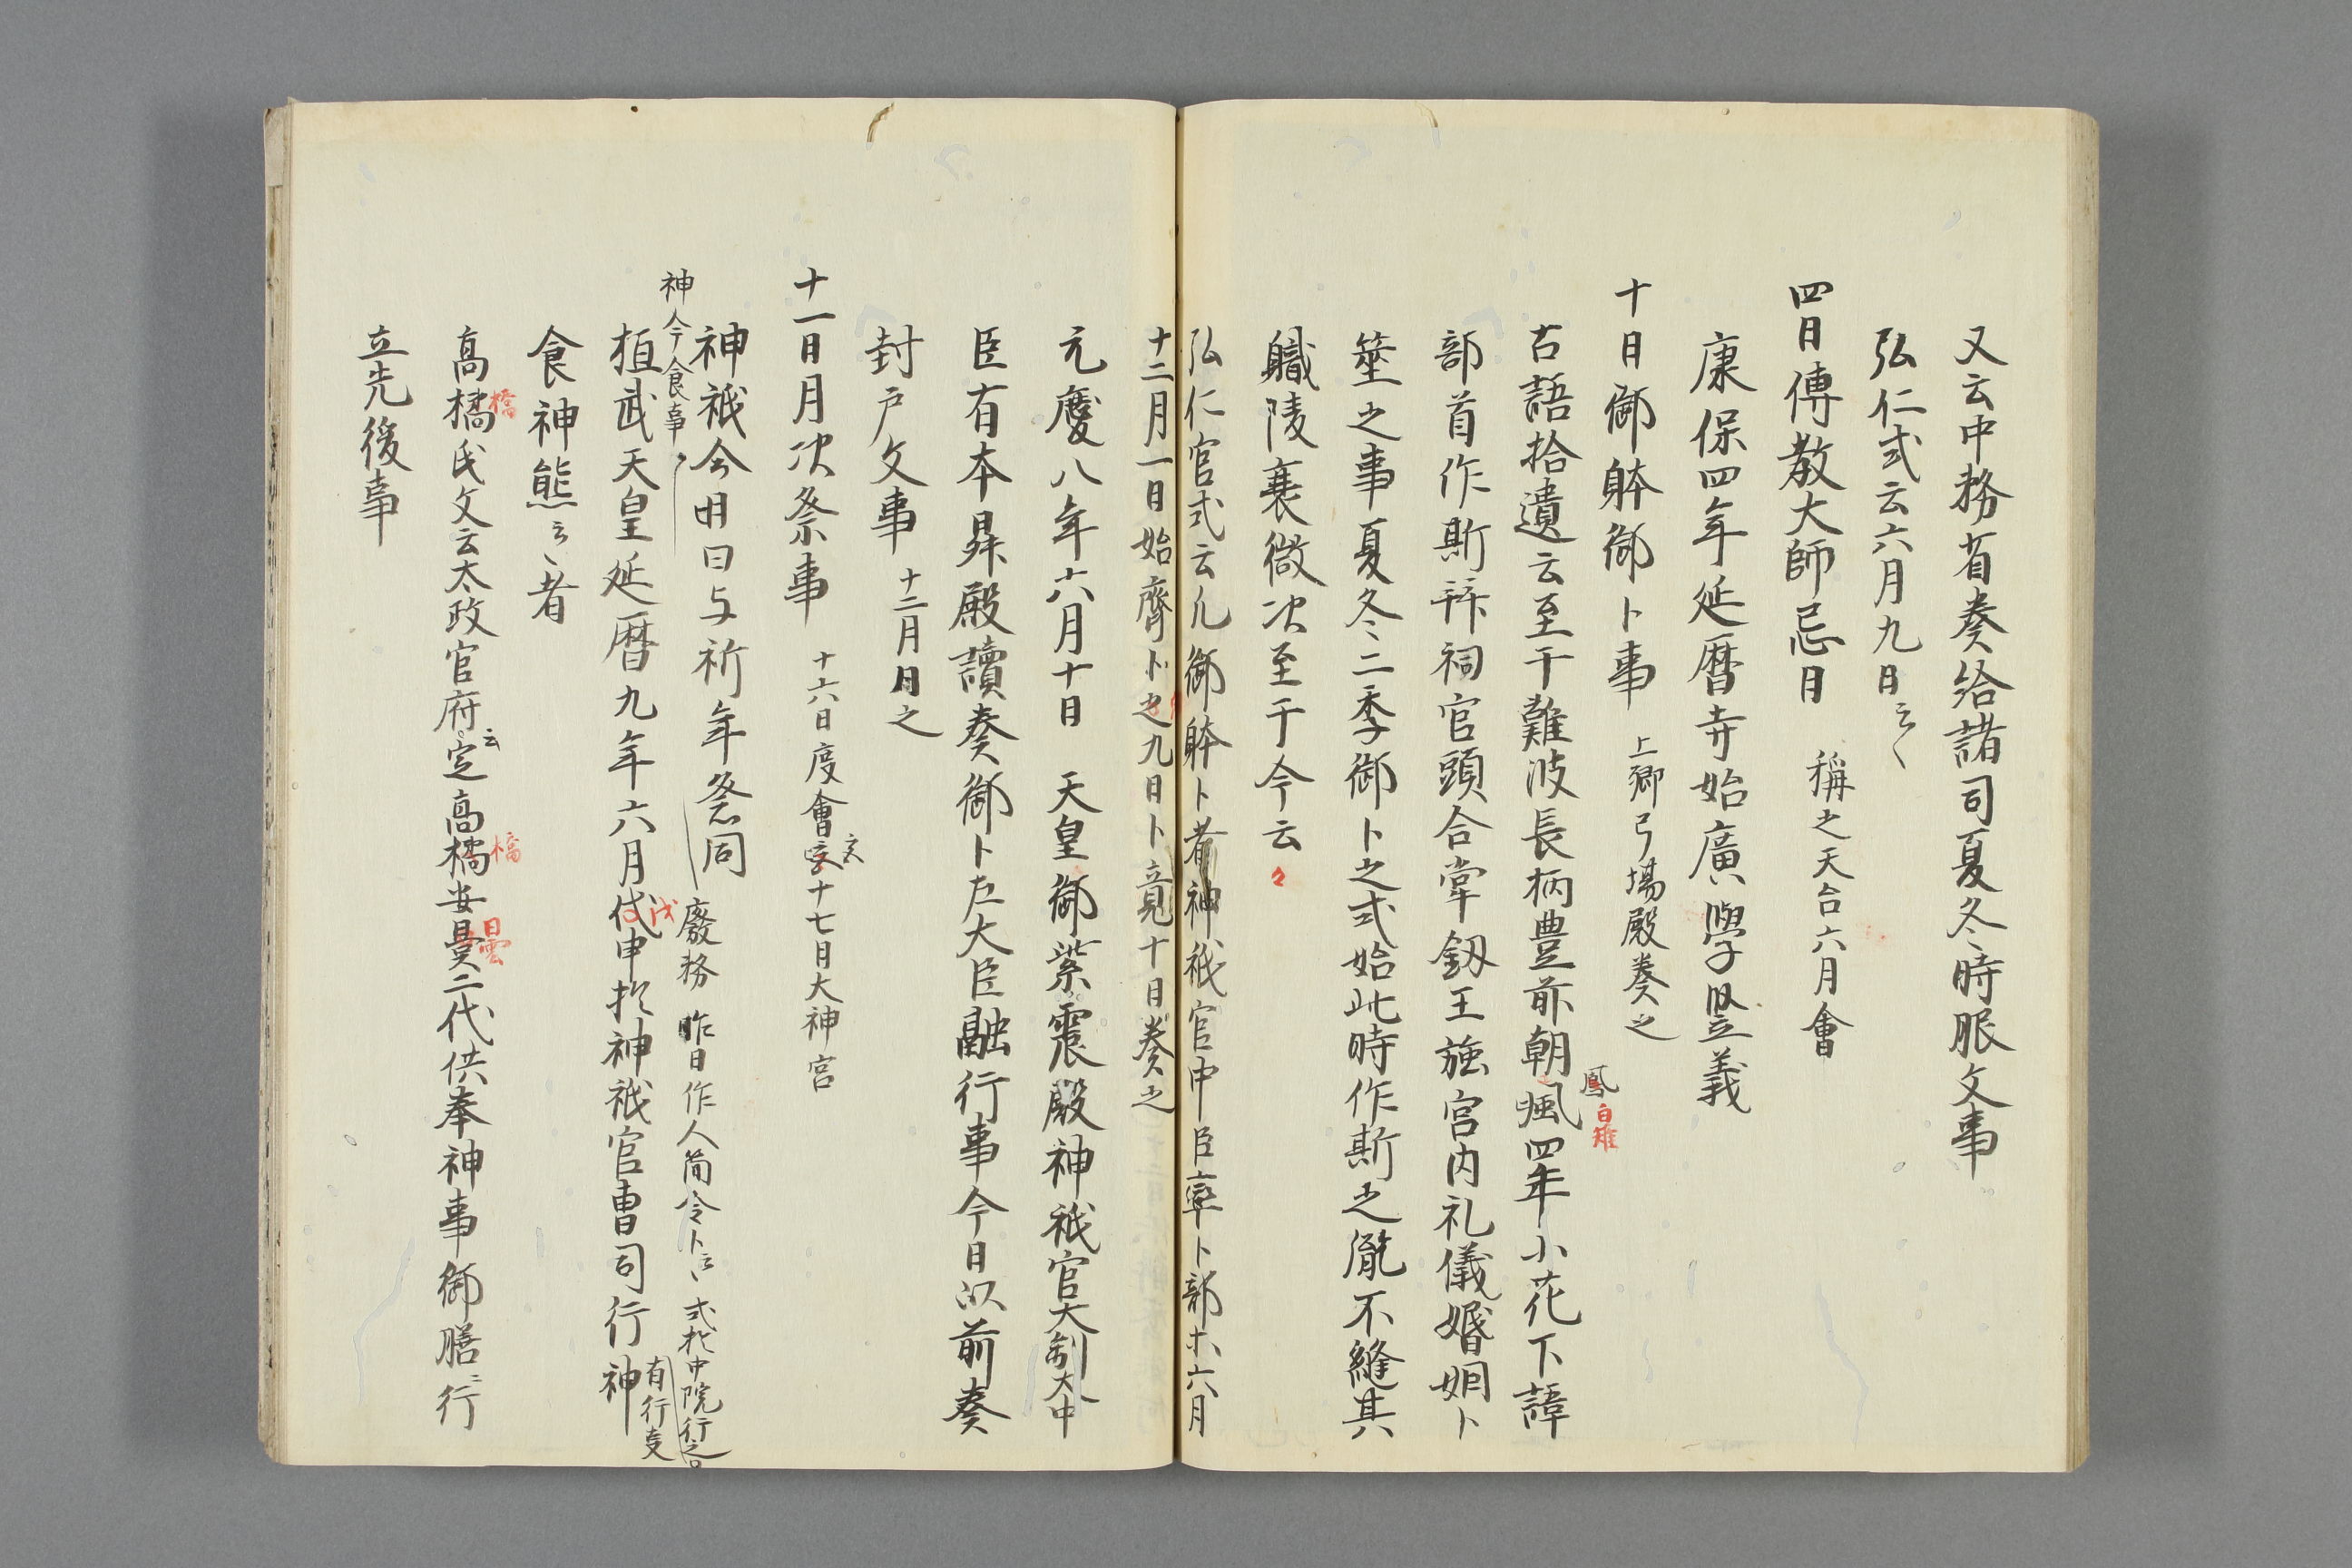 又云中務省奏給諸司夏冬時服文事
弘仁式云六月九日云〻
四日傳教大師忌日 稱之天台六月會
康保四年延暦寺始廣學竪義
十日御躰御卜事 上卿弓場殿奏之
古語拾遺云至于難波長柄豊前朝颯四年小花下諱
鳳
白雉
部首作斯拜祠官頭合掌釼王強宮内礼儀婚姻卜
筮之事夏冬二季御卜之式始此時作斯之胤不縫其
職陵襄微次至于今云〻
弘仁官式云凡御躰卜者神祇官中臣率卜部木六月
十二月一日始齊卜之九日卜竟十日奏之
元慶八年六月十日 天皇御紫震殿神祇官大制大中
臣有本昇殿讀奏御卜左大臣融行事今日以前奏
封戸文事 十二月月之
十一日月次祭事 十六日度會宮十七日大神宮
神祇令明日与祈年祭同 廢務 昨日作人简令卜云〻 式於中院行之
有行支
神今食事
桓武天皇延暦九年六月代申於神祇官曹司行神
戊
食神熊云〻者
高橘氏文云太政官府云定高橘安曇二代供奉神事御膳ニ行
橋
橋
曇
立先後事